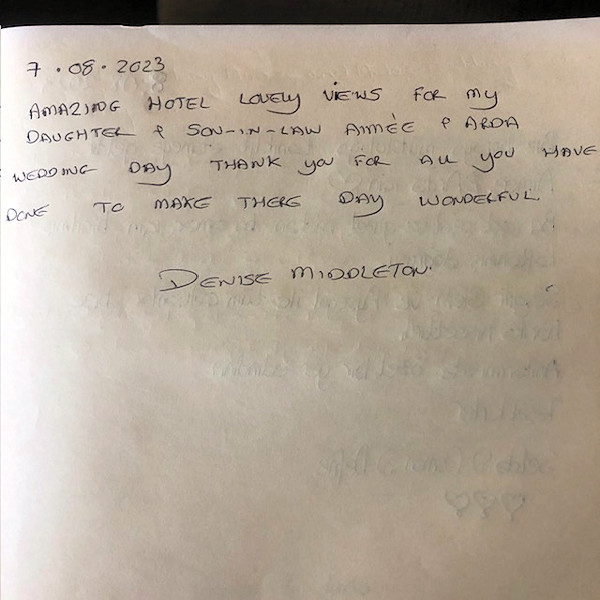 7.08.2023
AMAZING HOTEL LOVELY VIEWS FOR MY
DAUGHTER & SON-IN-LAW AIMÉE & ARDA
WEDDING DAY THANK YOU FOR ALL YOU HAVE
DONE TO MAKE THERE DAY WONDERFUL.
DENISE MIDDLETON.